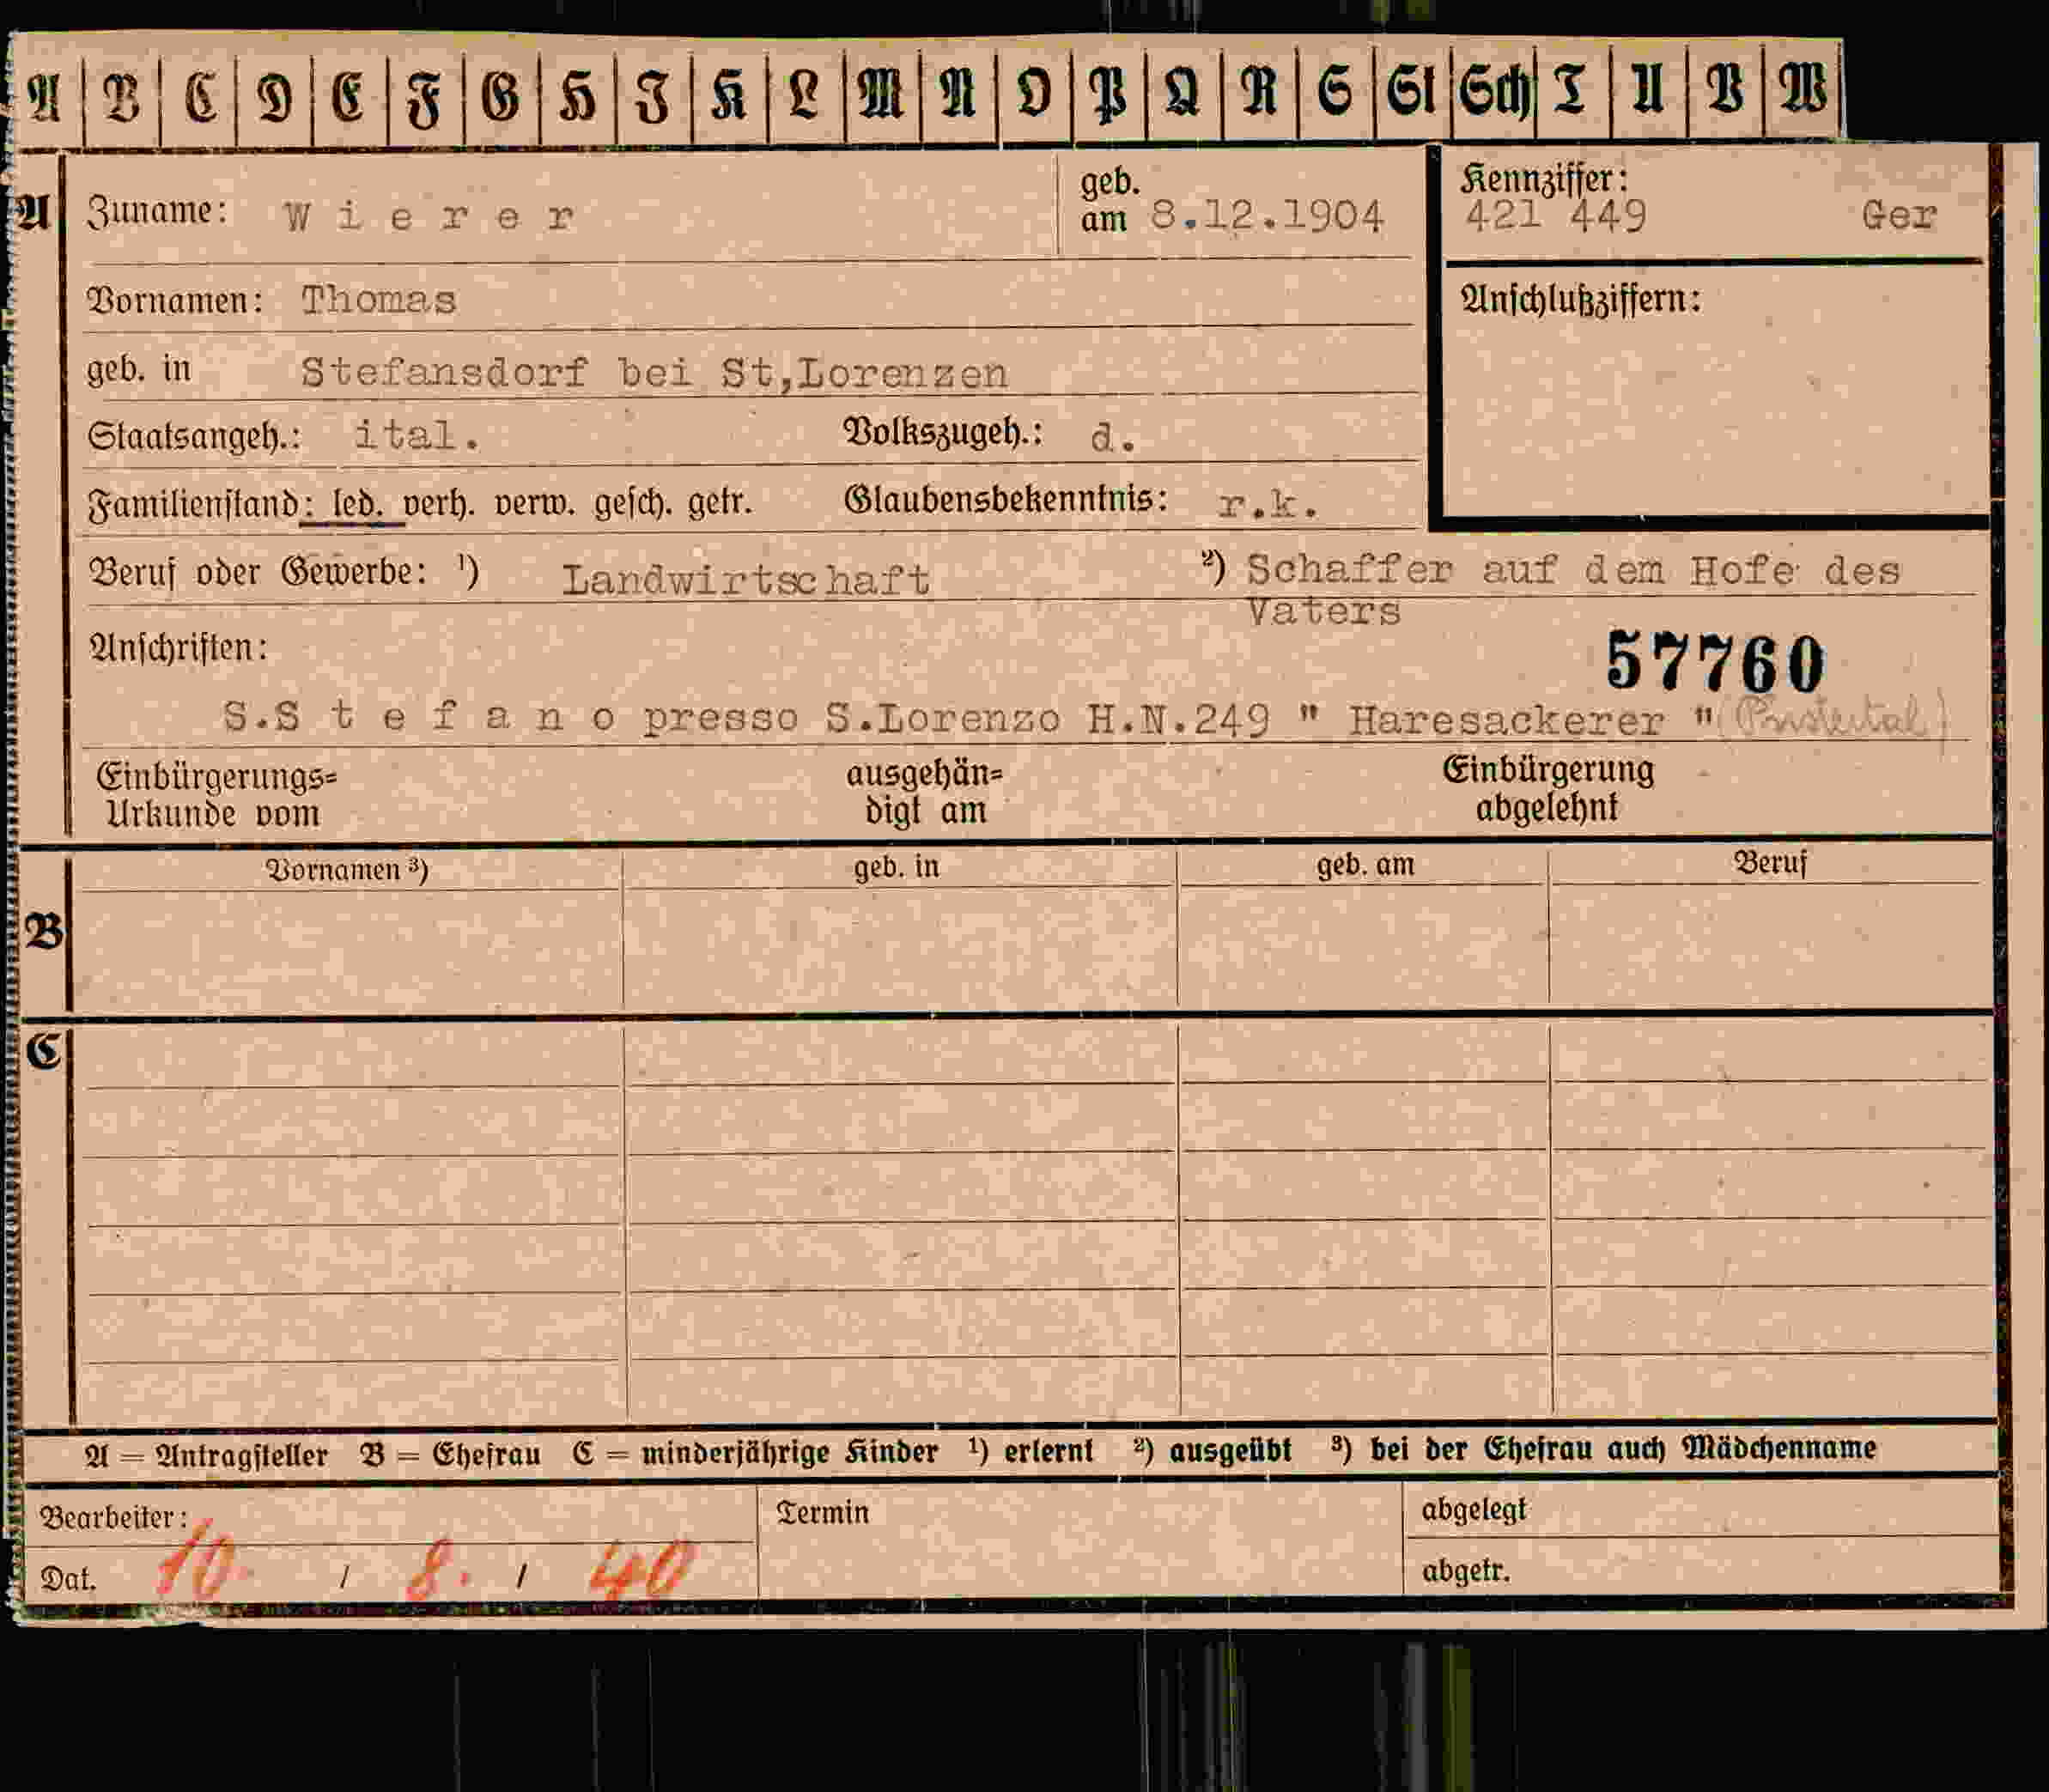 A B C D E F G H I K L M N O P Q R S St Sch T U V W
A Zuname: W i e r e r geb. am 8.12.1904 Kennziffer: 421 449 Ger
Vornamen: Thomas Anschlußziffern:
geb. in Stefansdorf bei St,Lorenzen
Staatsangeh.: ital. Volkszugeh.: d.
Familienstand: led. verh. verw. gesch. getr. Glaubensbekenntnis: r.k.
Beruf oder Gewerbe: ¹) Landwirtschaft ²) Schaffer auf dem Hofe des
Vaters
Anschriften: 57760
S.S t e f a n o presso S.Lorenzo H.N.249 " Haresackerer " (Pustertal)
Einbürgerungs= ausgehän= Einbürgerung
Urkunde vom digt am abgelehnt
Vornamen ³) geb. in geb. am Beruf
B
C
A = Antragsteller B = Ehefrau C = minderjährige Kinder ¹) erlernt ²) ausgeübt ³) bei der Ehefrau auch Mädchenname
Bearbeiter: Termin abgelegt
Dat. 10. / 8. / 40 abgetr.